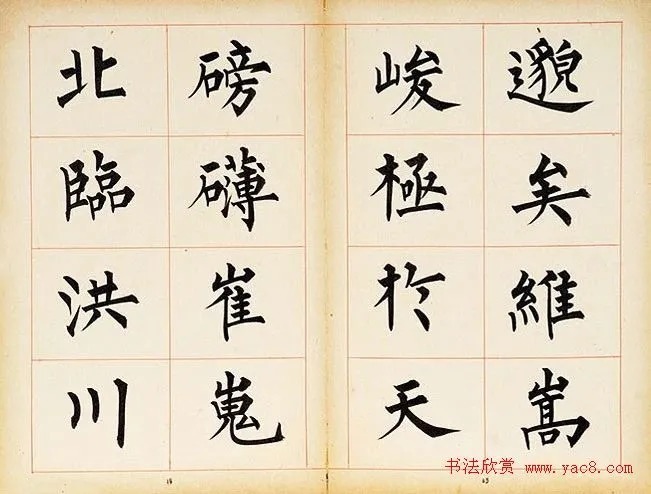 邈矣維嵩
峻極於天
磅礴崔嵬
北臨洪川
书法欣赏 www.yac8.com